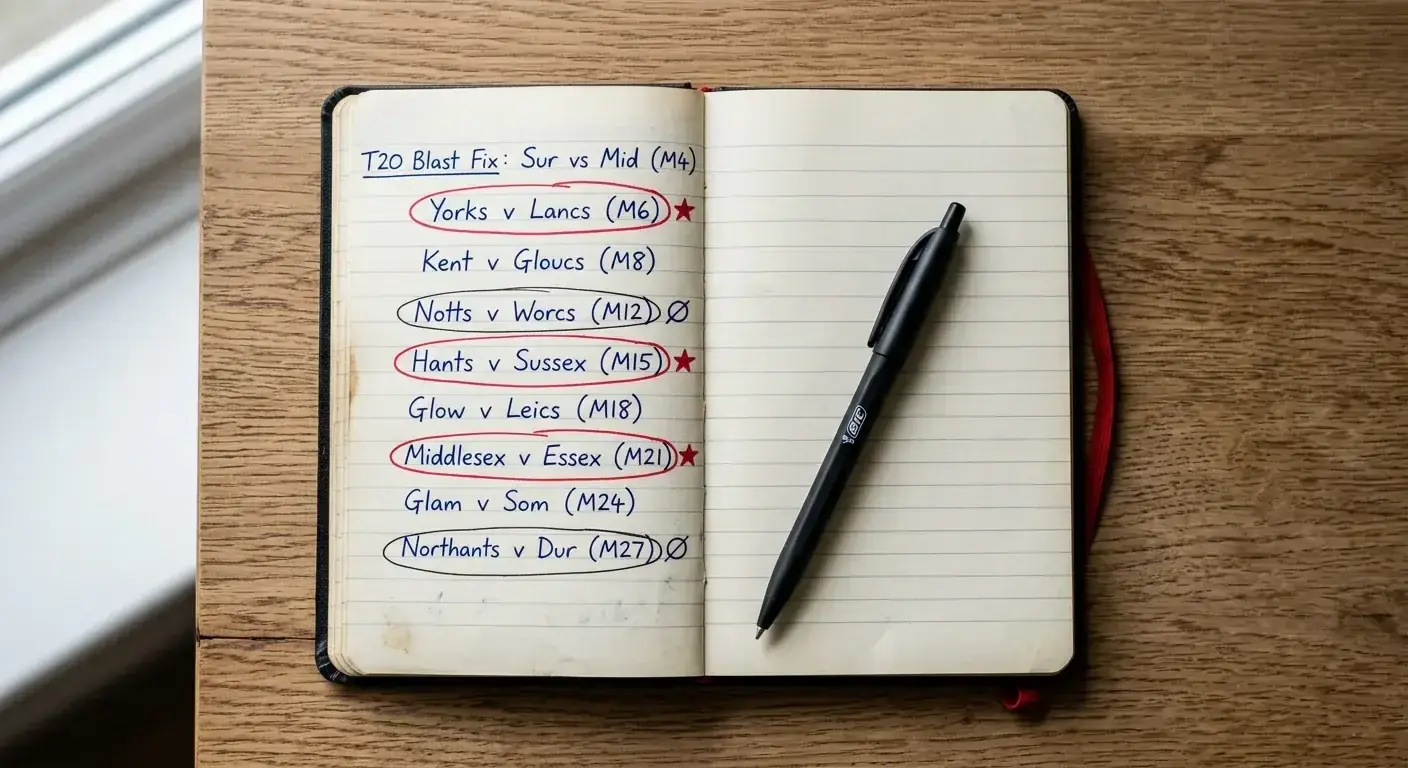 T20 Blast Fix: Sur vs Mid (M4)
Yorks v Lancs (M6) ★
Kent v Gloucs (M8)
Notts v Worcs (M12) ∅
Hants v Sussex (M15) ★
Glow v Leics (M18)
Middlesex v Essex (M21) ★
Glam v Som (M24)
Northants v Dur (M27) ∅
BIC